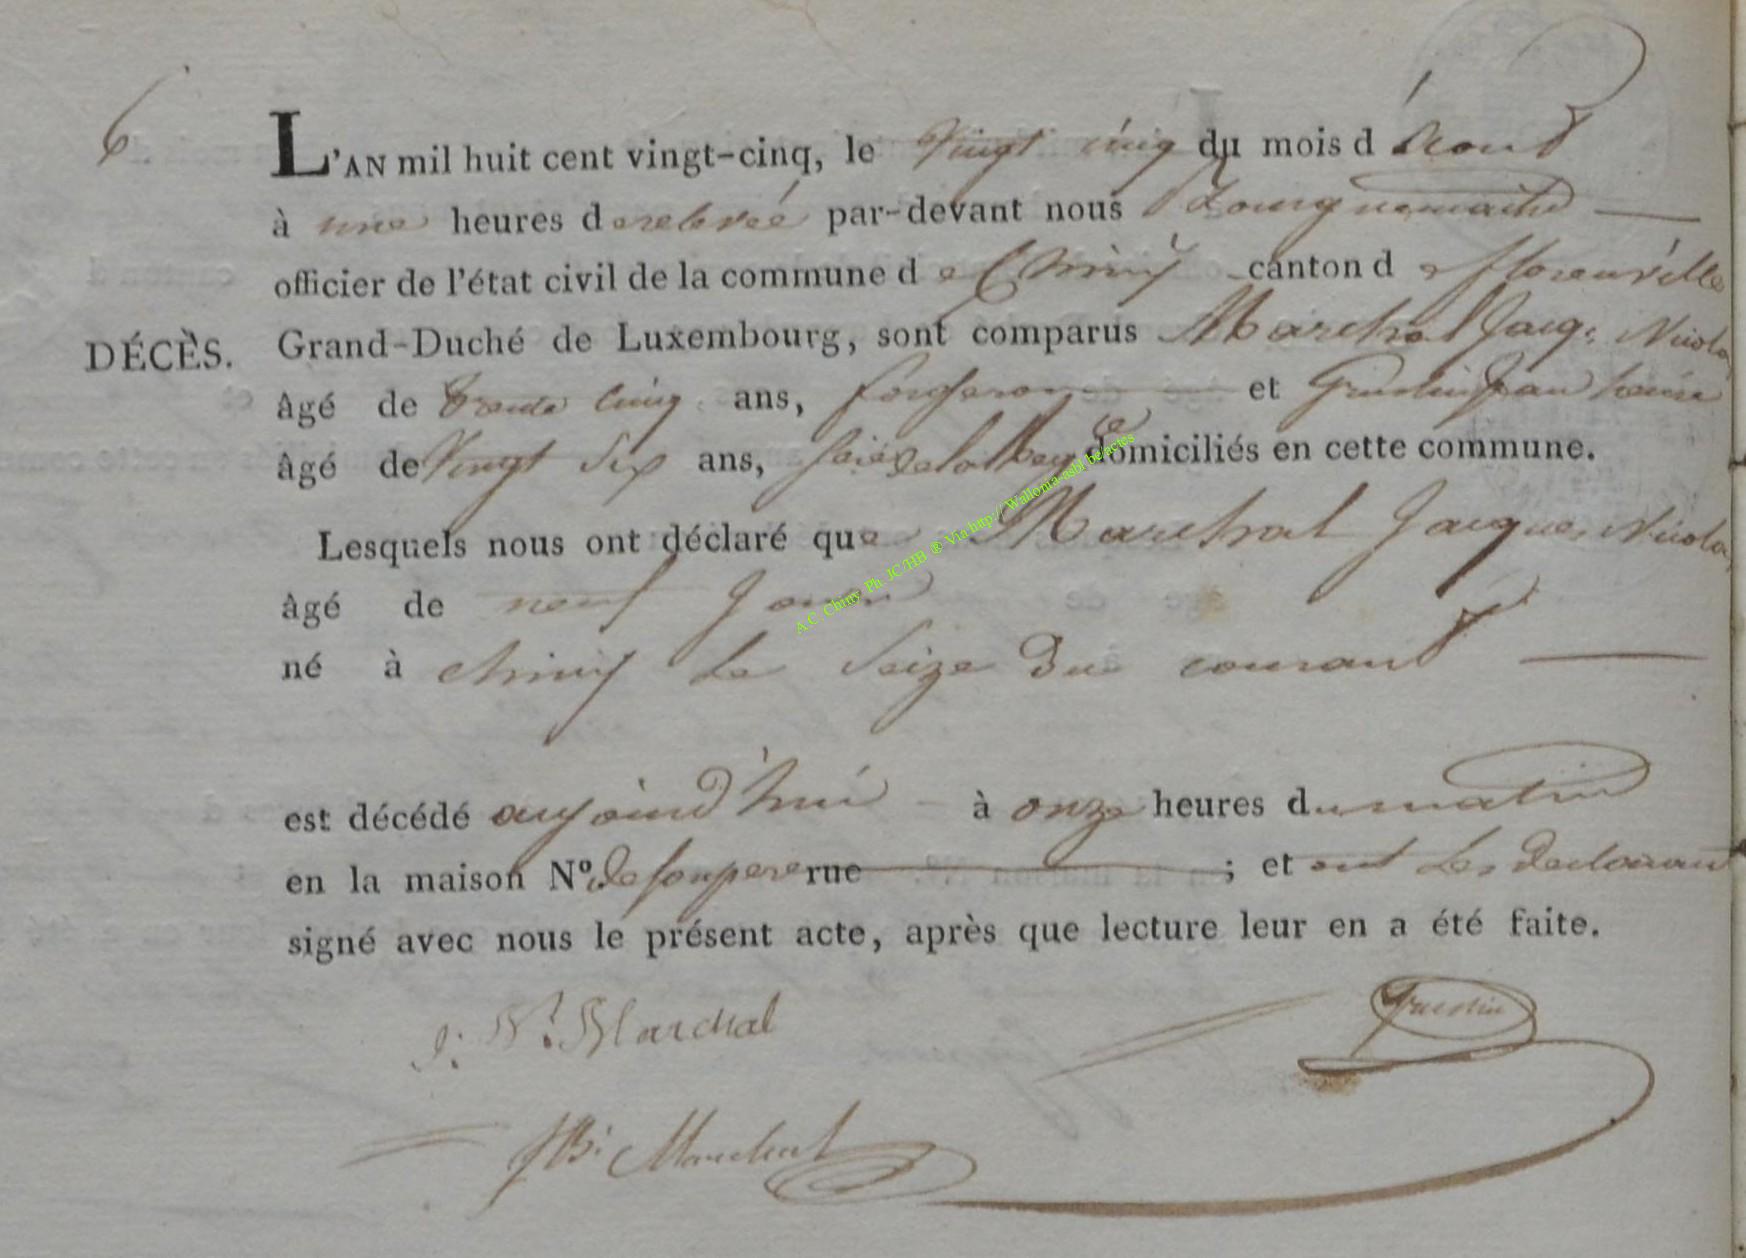 6
L'AN mil huit cent vingt-cinq, le Vingt cinq du mois d'Aout
à une heures de relevée par-devant nous Bourguemaitre
officier de l'état civil de la commune de Chiny canton de florenville
DÉCÈS.
Grand-Duché de Luxembourg, sont comparus Marchal Jacq. Nicolas
âgé de trente cinq ans, forgeron et Jean
âgé de Vingt six ans, domiciliés en cette commune.
Lesquels nous ont déclaré que Marchal Jacques Nicolas
âgé de neuf Jours
né à chiny Le Seize du courant
est décédé aujourd'hui à onze heures du matin
en la maison N° de son pere rue ; et ont Les Declarant
signé avec nous le présent acte, après que lecture leur en a été faite.
J: N: Marchal
Marchal
A.C. Chiny Ph. JC/HB ® Via http://Wallonia-asbl.be/actes